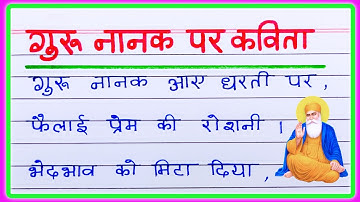 गुरु नानक पर कविता
गुरु नानक आए धरती पर,
फैलाई प्रेम की रोशनी ।
भेदभाव को मिटा दिया,